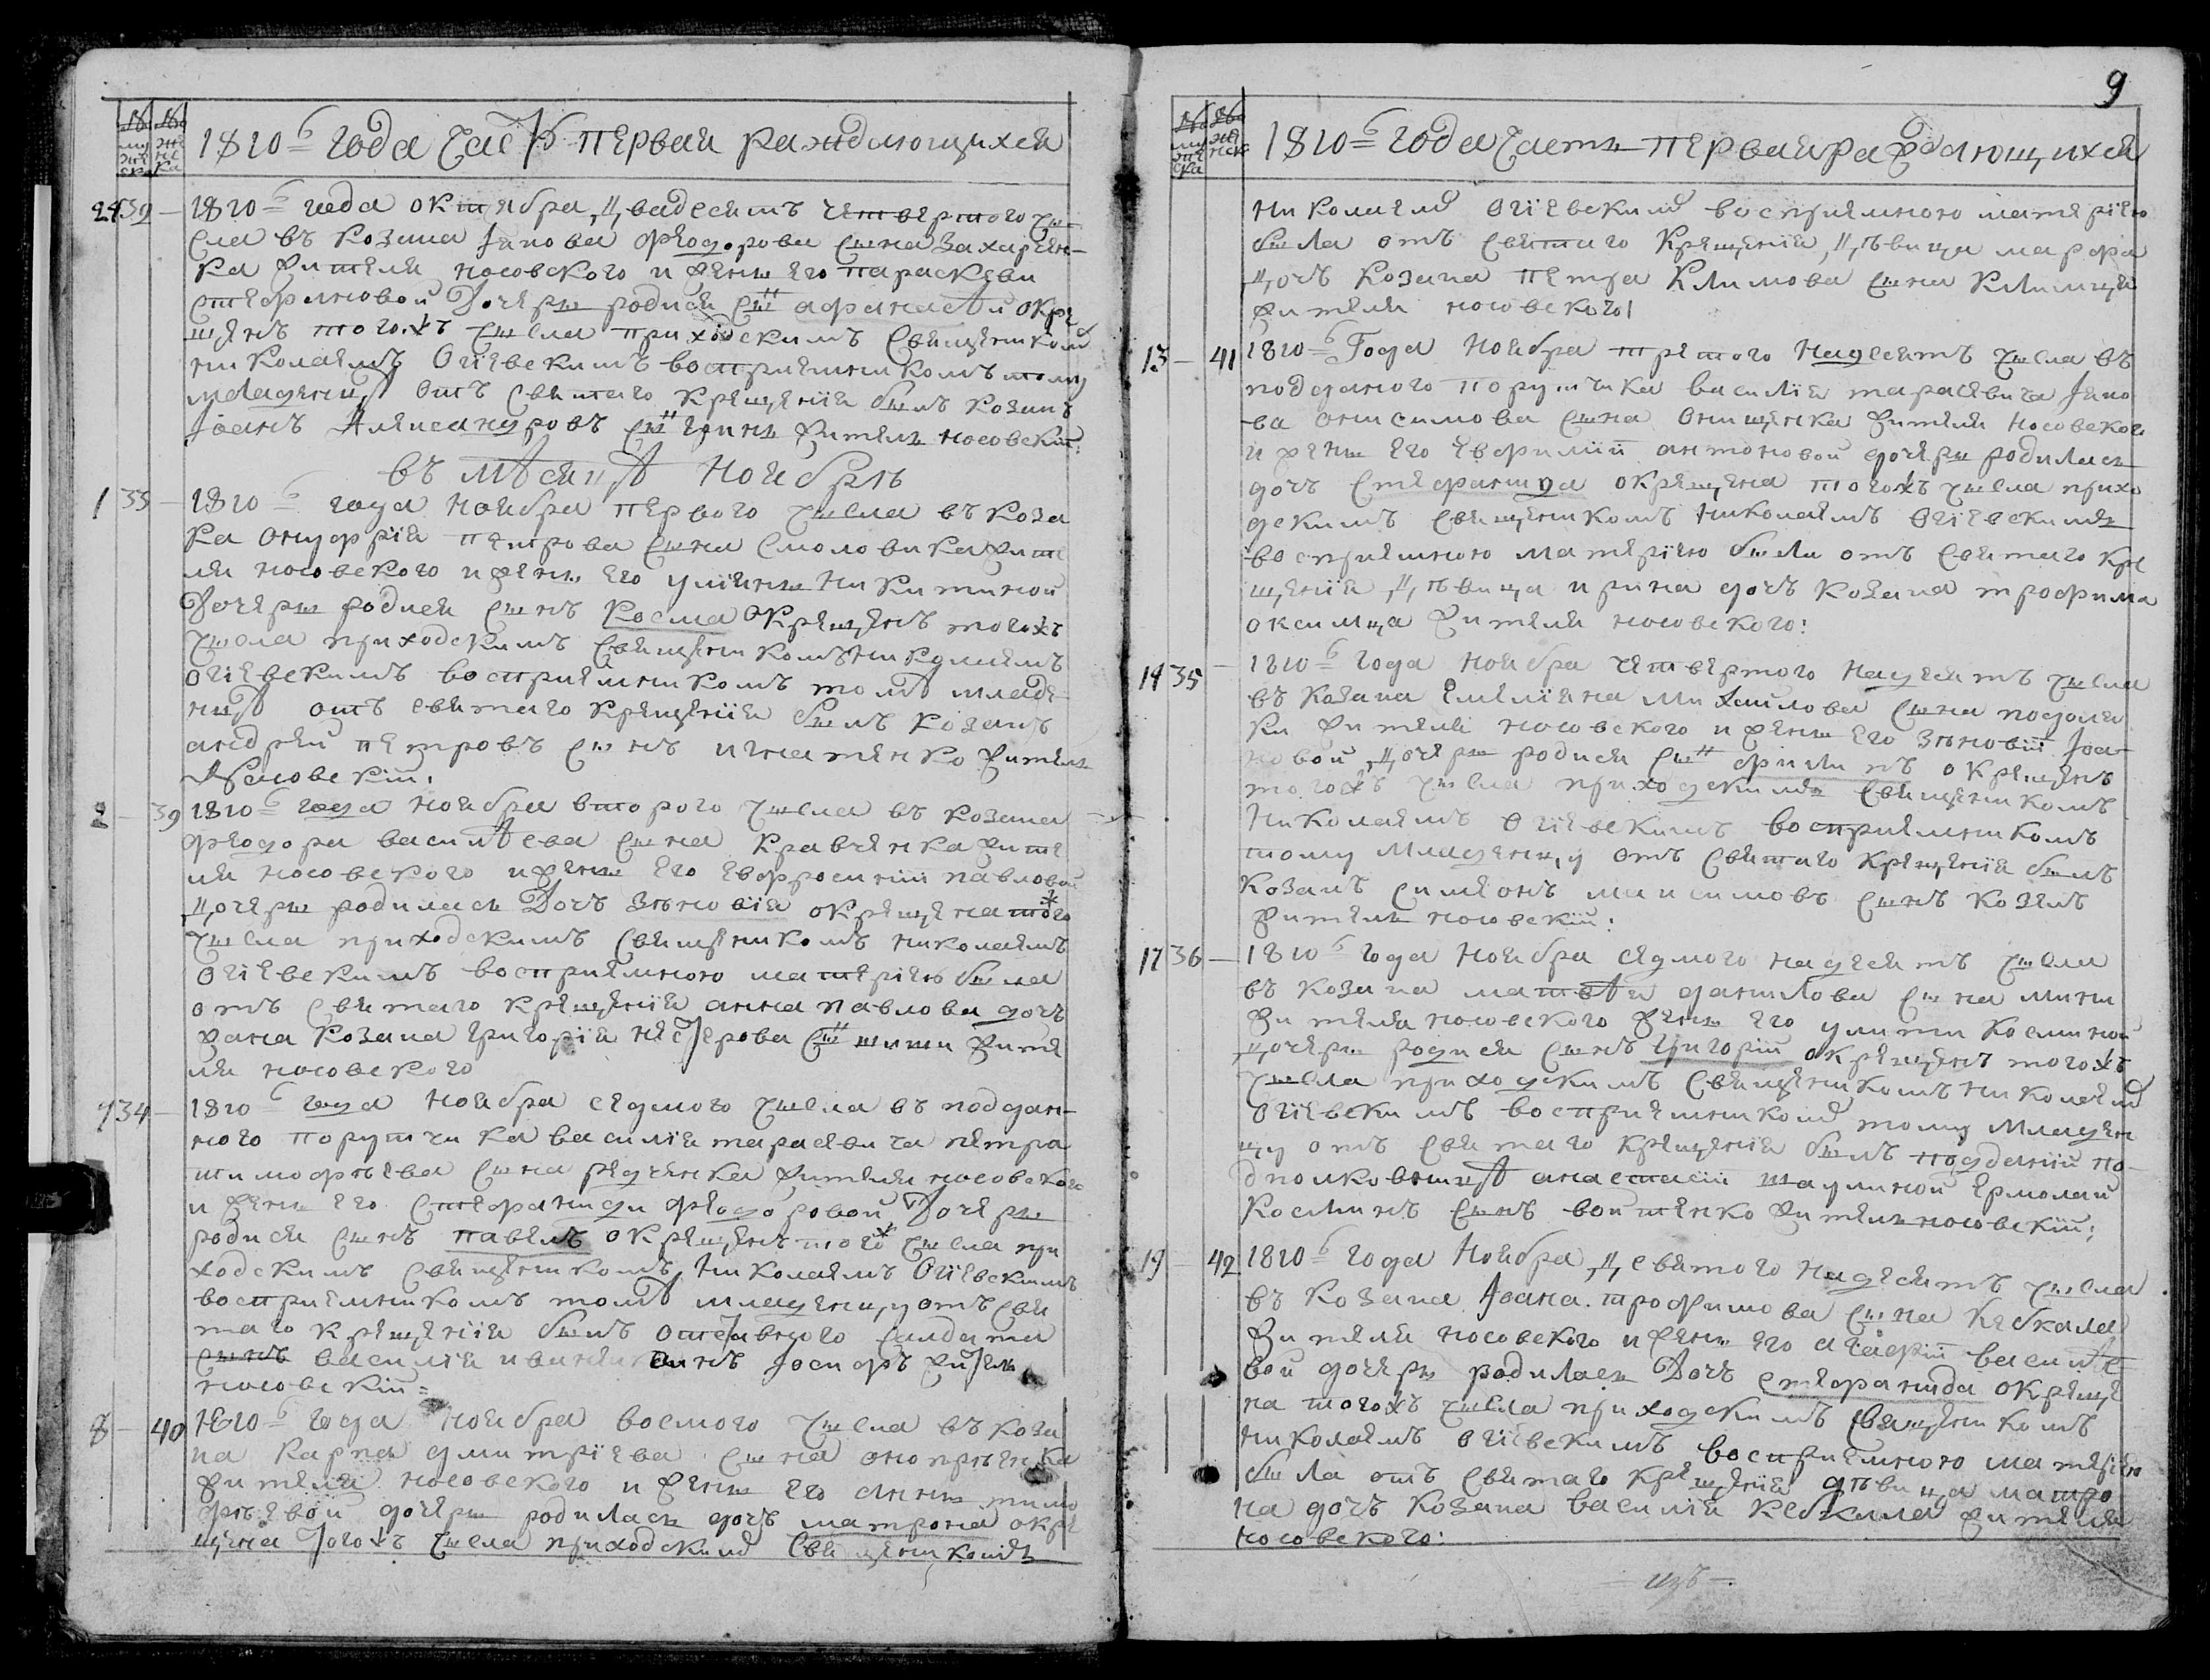 1810го года часть первая раждающихся
24 32 1810го года октября двадесятъ четвертого чи-
сла въ козака Якова феодорова сына Захарен-
ка жителя носовского и жены его параскеви
стефановой дочеры родися сынъ афанасѣй окре
щенъ тогожъ числа приходскимъ священикомъ
николаемъ Огіевскимъ воспріемникомъ тому
младенцѣ отъ святаго крещенія былъ козакъ
Іоанъ Александровъ сынъ житель носовскій:
въ мѣсяцѣ ноябрѣ
1 33 1810го года ноября первого числа въ коза
ка онуфрія петрова сына Смоловика жите
ля носовского и жены его уліяны никитиной
дочеры родися сынъ Косма окрещенъ тогожъ
числа приходскимъ священикомъ николаемъ
огіевскимъ воспріемникомъ томѣ младе
нцѣ отъ святаго крещенія былъ козакъ
андрей петровъ сынъ игнатенко житель
носовскій:
2 39 1810го года ноября второго числа въ козака
феодора василѣева сына Кравченка жите
ля носовского и жены его евфросиніи павловой
дочеры родилась дочъ зѣновія окрещена того
числа приходскимъ священикомъ николаемъ
огіевскимъ воспріемною матерію была
отъ святаго крещенія анна павлова дочъ
жена козака григорія нестерова сына жите
ля носовского
7 34 1810го года ноября седмого числа въ поддан-
ного порутчика василія тарасевича петра
тимофѣева сына редченка жителя носовского
и жены его стефаниди феодоровой дочеры
родися сынъ павелъ окрещенъ того числа при
ходскимъ священикомъ николаемъ Огіевскимъ
воспріемникомъ томѣ младенцу отъ свя
таго крещенія былъ отставного салдата
сынъ василія сынъ Іосифъ житель
носовскій
8 40 1810го года ноября восмого числа въ коза
ка карпа дмитріева сына онопрѣенка
жителя носовского и жены его анны тимо
фѣевой дочеры родилась дочъ матрона окре
щена тогожъ числа приходскимъ священикомъ
9
1810го года часть первая раждающихся
николаемъ огіевскимъ воспріемною матерію
была отъ святаго крещенія дѣвица марфа
дочъ козака петра Климова сына Климца
жителя носовского
13 41 1810го года ноября третого надесятъ числа въ
подданого порутчика василія тарасевича Яко
ва онисимова сына онищенка жителя носовского
и жены его евфиміи антоновой дочеры родилась
дочъ стефанида окрещена тогожъ числа прихо
дскимъ священикомъ николаемъ огіевскимъ
воспріемною матерію была отъ святаго кре
щенія дѣвица ирина дочъ козака трофима
оксимца жителя носовского:
14 35 1810го года ноября четвертого надесятъ числа
въ козака емеліяна михайлова сына
ки жителя носовского и жены его зѣновіи Іоа-
новой дочеры родися сынъ филипъ окрещенъ
тогожъ числа приходскимъ священикомъ
николаемъ огіевскимъ воспріемникомъ
тому младенцу отъ святаго крещенія былъ
козакъ симеонъ максимовъ сынъ козелъ
житель носовскій:
17 36 1810го года ноября седмого надесятъ числа
въ козака матѳѣя данилова сына
жителя носовского жены его улити косминой
дочеры родися сынъ григорій окрещенъ тогожъ
числа приходскимъ священикомъ николаемъ
огіевскимъ воспріемникомъ тому младен
цу отъ святаго крещенія былъ подданій по-
дполковницѣ анастасіи шаулиной ермолай
косминъ сынъ войтенко житель носовскій:
19 42 1810го года ноября девятого надесятъ числа
въ козака Іоана трофимова сына Кебкала
жителя носовского и жены его агафіи василѣе
вой дочеры родилась дочъ стефанида окреще
на тогожъ числа приходскимъ священикомъ
николаемъ огіевскимъ воспріемною матерію
была отъ святаго крещенія дѣвица матро
на дочъ козака василія Кебкала жителя
носовского: